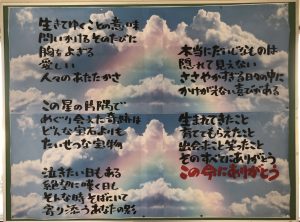 生きてゆくことの意味
問いかけるそのたびに
胸をよぎる
愛しい
人々のあたたかさ
この星の片隅で
めぐり会えた奇跡は
どんな宝石よりも
たいせつな宝物
泣きたい日もある
絶望に嘆く日も
そんな時そばにいて
寄り添うあなたの影
本当にだいじなものは
隠れて見えない
ささやかすぎる日々の中に
かけがえない喜びがある
生まれてきたこと
育ててもらえたこと
出会ったこと笑ったこと
そのすべてにありがとう
この命にありがとう